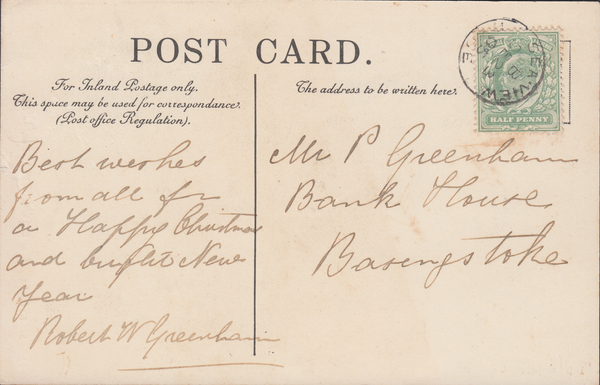 POST CARD.
For Inland Postage only.
This space may be used for correspondence.
(Post office Regulation).
The address to be written here.
SEAVIEW
HALF PENNY
Best wishes
from all for
a Happy Christmas
and bright New
Year
Robert W Greenham
Mr P Greenham
Bank House
Basingstoke